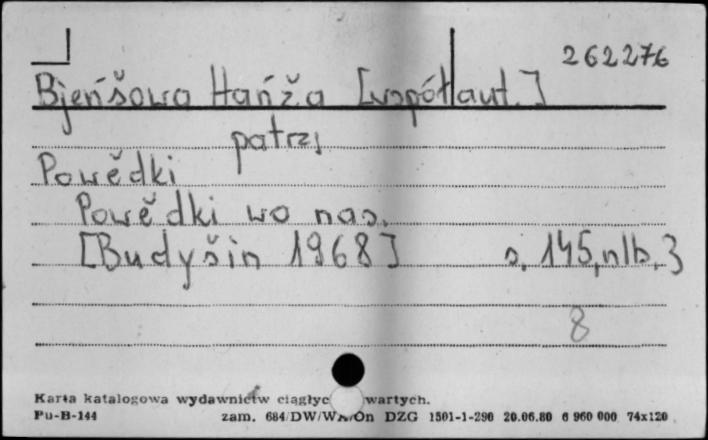 262276
Bjeńšowa Hańža [współaut.]
patrz
Powědki
Powědki wo nas.
[Budyšin 1968] s. 145, nlb. 3
8
Karta katalogowa wydawnictw ciągłyc wartych.
Pu-B-144 zam. 684/DW/WA/On DZG 1501-1-290 20.06.80 6 960 000 74x120